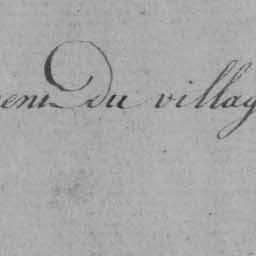 ent Du villag